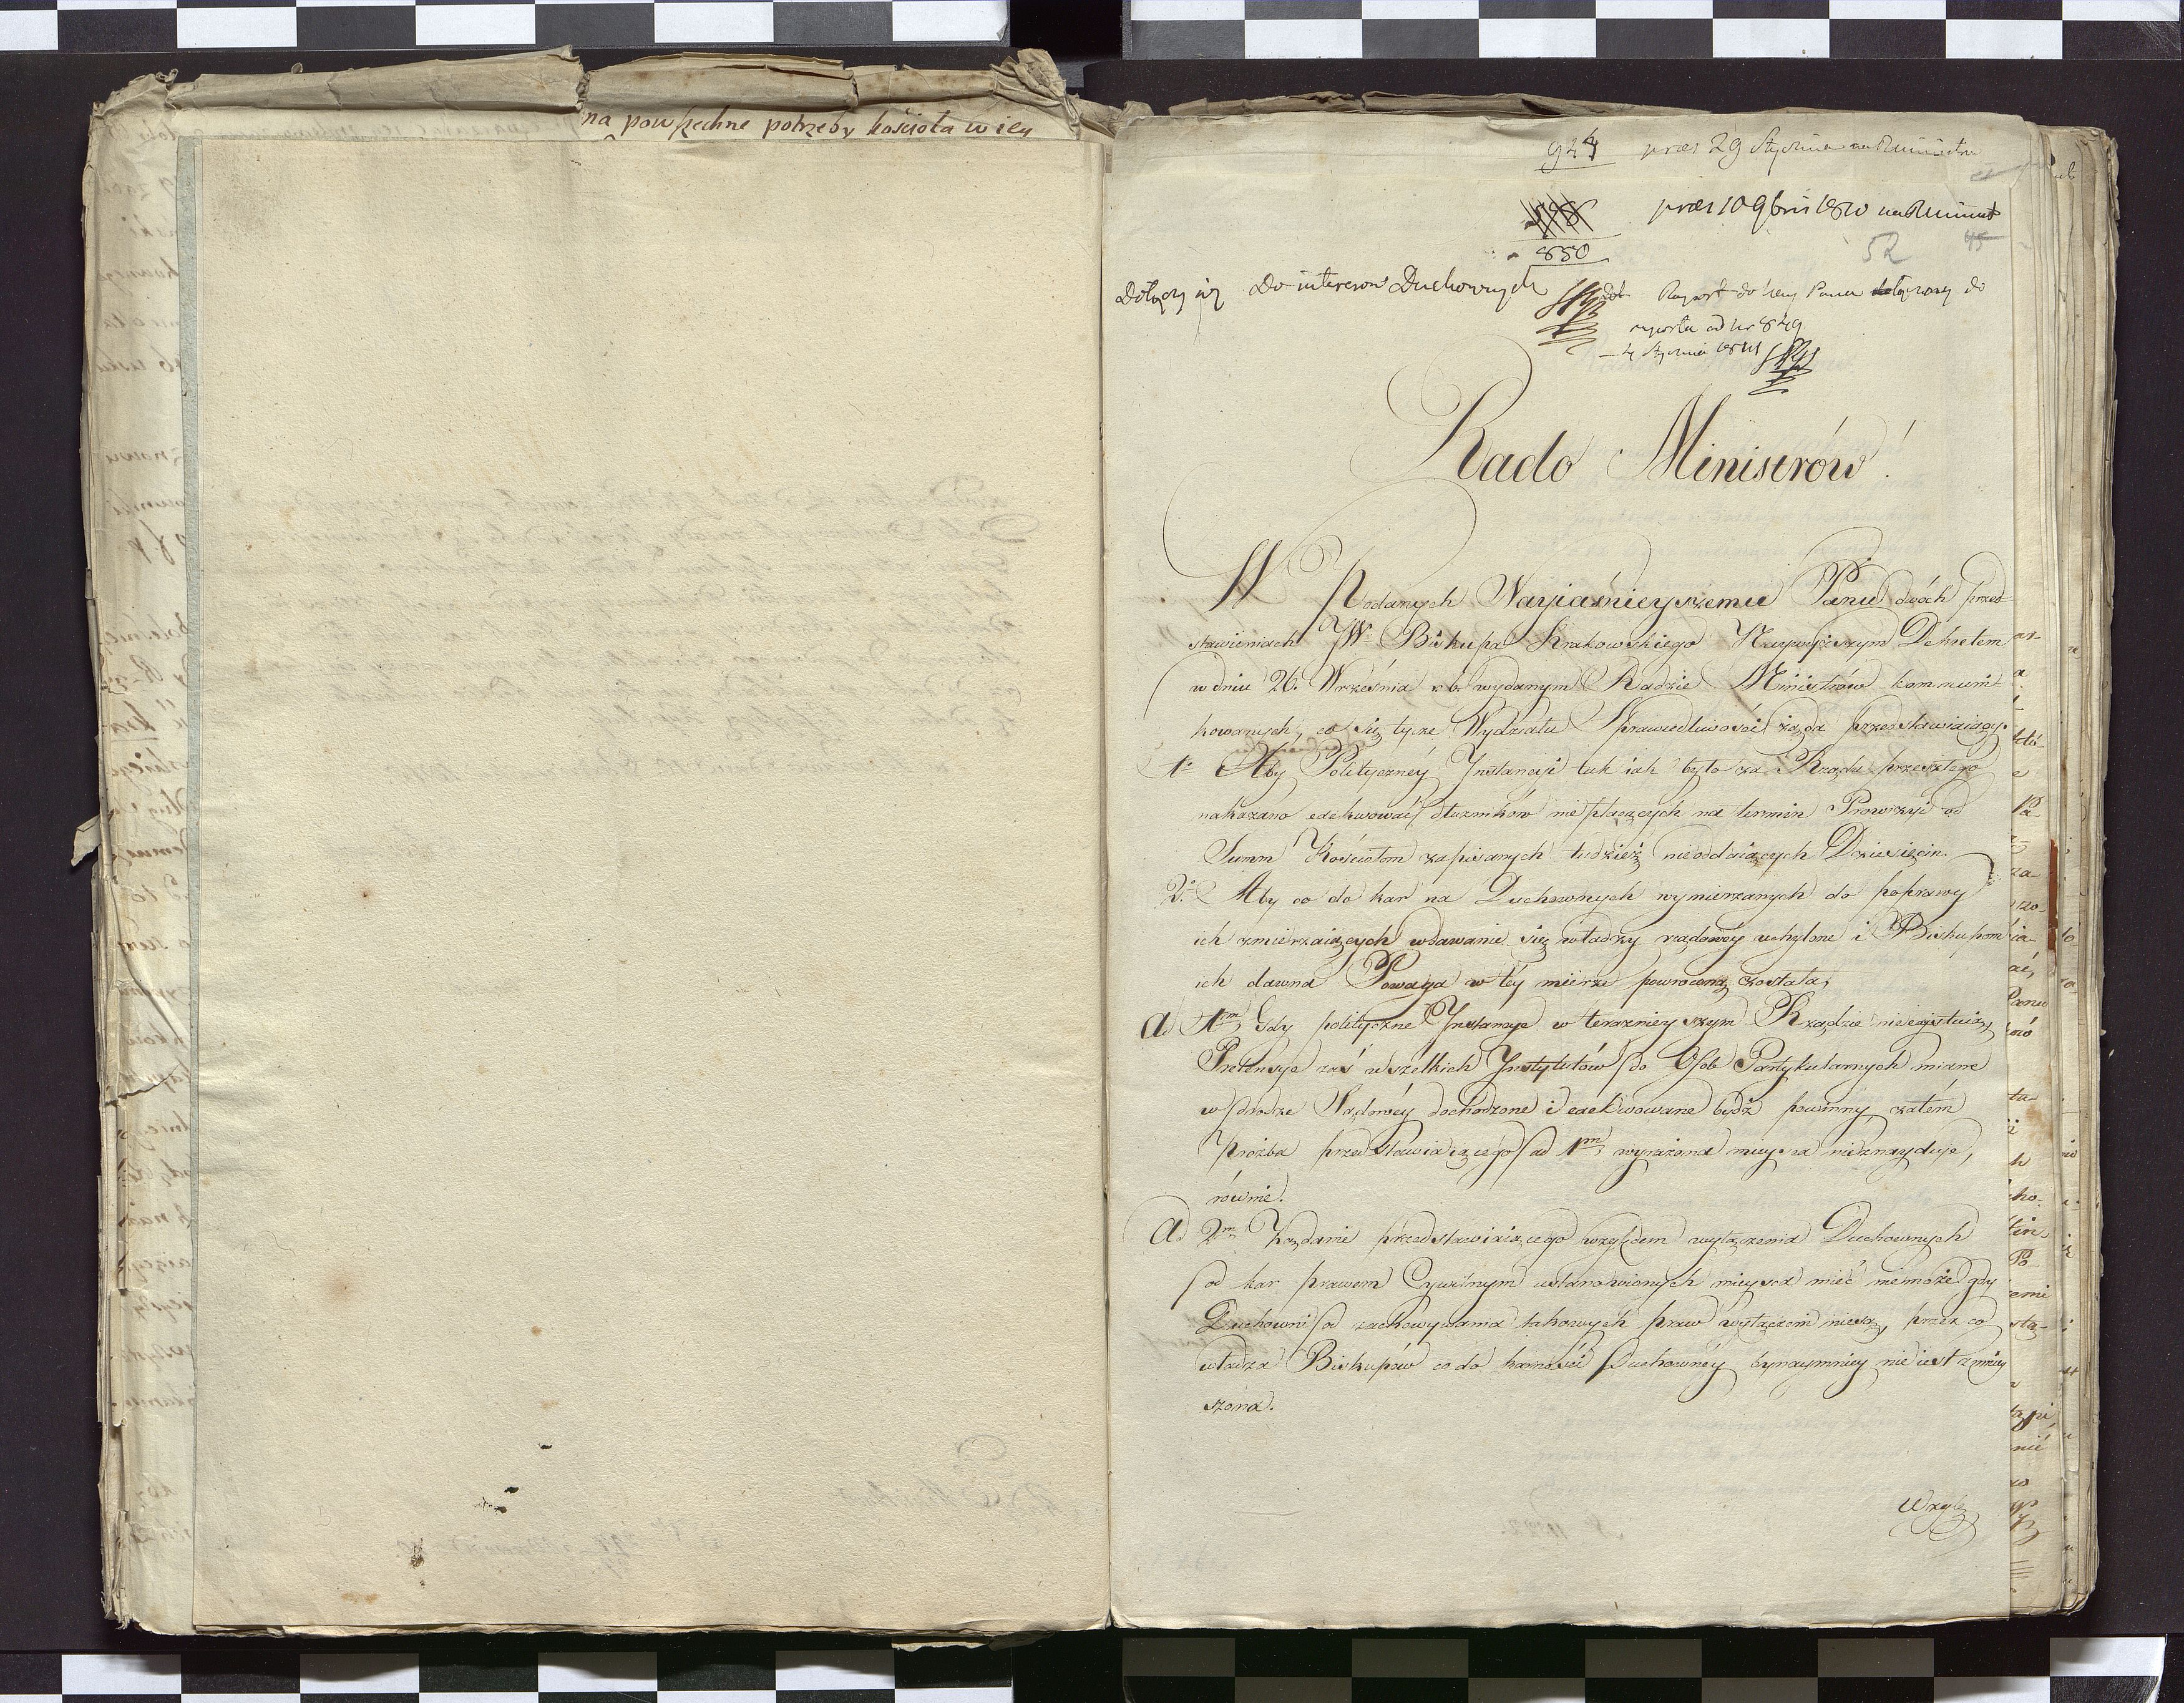 na powszechne potrzeby kościoła w icy
924 præs 29 Stycznia na R Ministrów
præs 10 9bris 1810 na R Minist
850
52
45
Dołączy się Do interesow Duchownych
Raport do Nay Pana dołączony do
raportu ad Nr 849
4 Stycznia 1811
Rado Ministrów!
W Podanych Nayiaśnieyszemu Panu dwóch przed-
stawieniach JW. Biskupa Krakowskiego Naywyższym Dekretem
w dniu 26. Września r. b. wydanym Radzie Ministrów kommuni-
kowanych, co się tycze Wydziału Sprawiedliwości żąda przedstawiaiący.
1o Aby Polityczney Instancyi tak iak było za Rządu przeszłego
nakazano exekwować dłużników niepłacących na termin Prowizyi od
Summ Kościołom zapisanych tudzież nieoddaiących Dziesięcin.
2o Aby co do kar na Duchownych wymierzanych do poprawy
ich zmierzaiących wdawanie się władzy rządowey uchylone i Biskupom
ich dawna Powaga w tey mierze powrócona została,
Ad 1m Gdy polityczne Instancye w teraznieyszym Rządzie nieexystuią,
Pretensye zaś wszelkich Instytutów do Osob Partykularnych miane
w drodze Sądowey dochodzone i exekwowane bydź powinny, zatém
Prożba przedstawiaiącego ad 1m wyrażona mieysca nieznayduje,
równie.
Ad 2m Żądanie przedstawiaiącego względem wyłączenia Duchownych
od kar prawem Cywilnym ustanowionych mieysca mieć niemoże gdy
Duchowni od zachowywania takowych praw wyłączeni niesą, przez co
władza Biskupów co do karności Duchowney bynaymniey nie iest zmniey
szona.
Wzglę